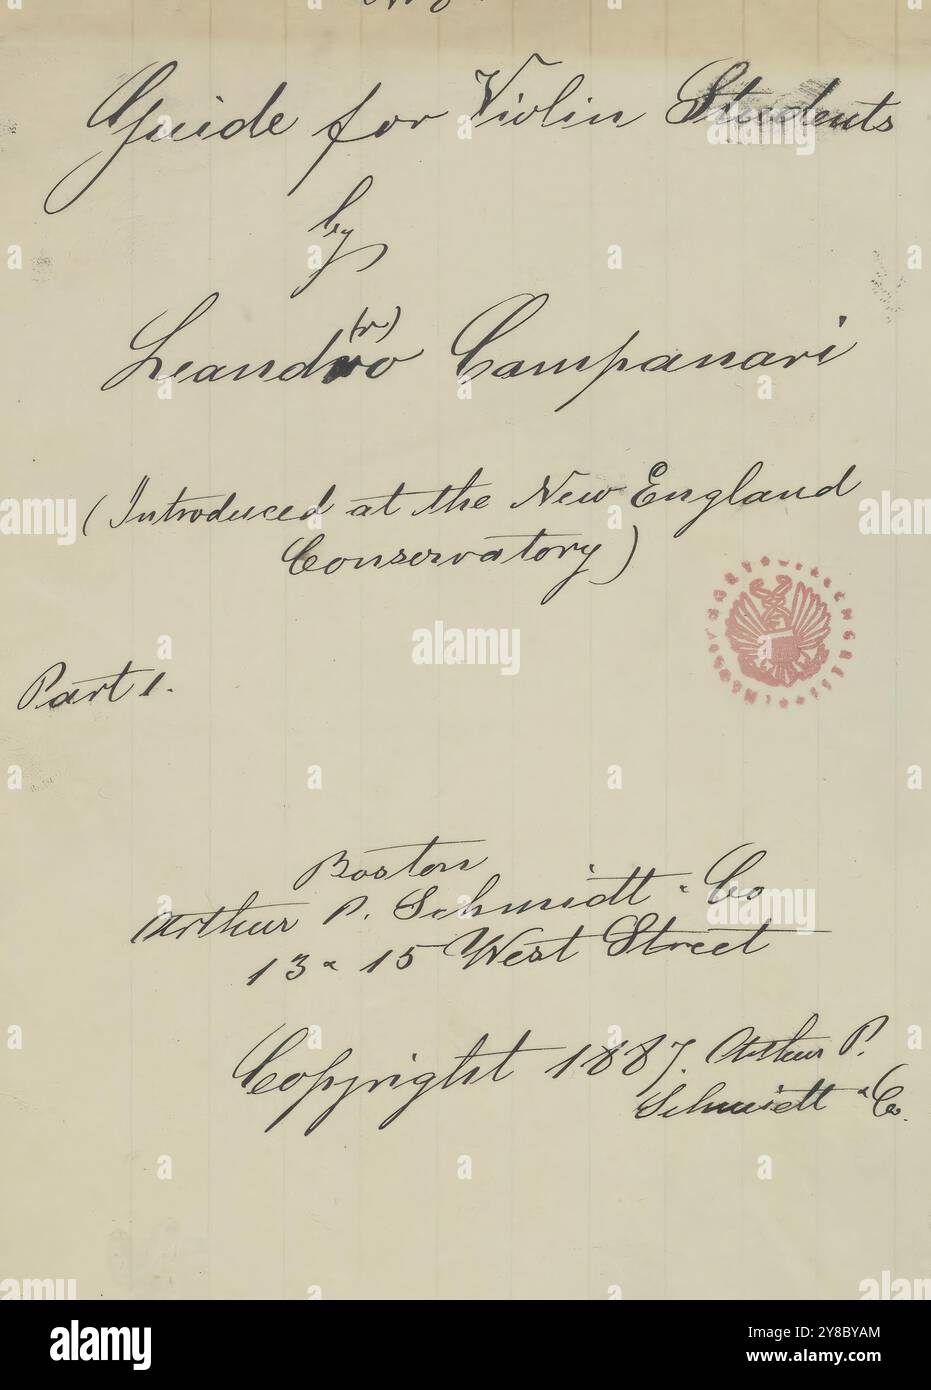 Guide for Violin Students
by
(r)
Leandro Campanari
(Introduced at the New England
Conservatory)
Part 1.
Boston
Arthur P. Schmidt & Co
13 & 15 West Street
Copyright 1887. Arthur P.
Schmidt & Co.
alamy
Image ID: 2Y8BYAM
www.alamy.com